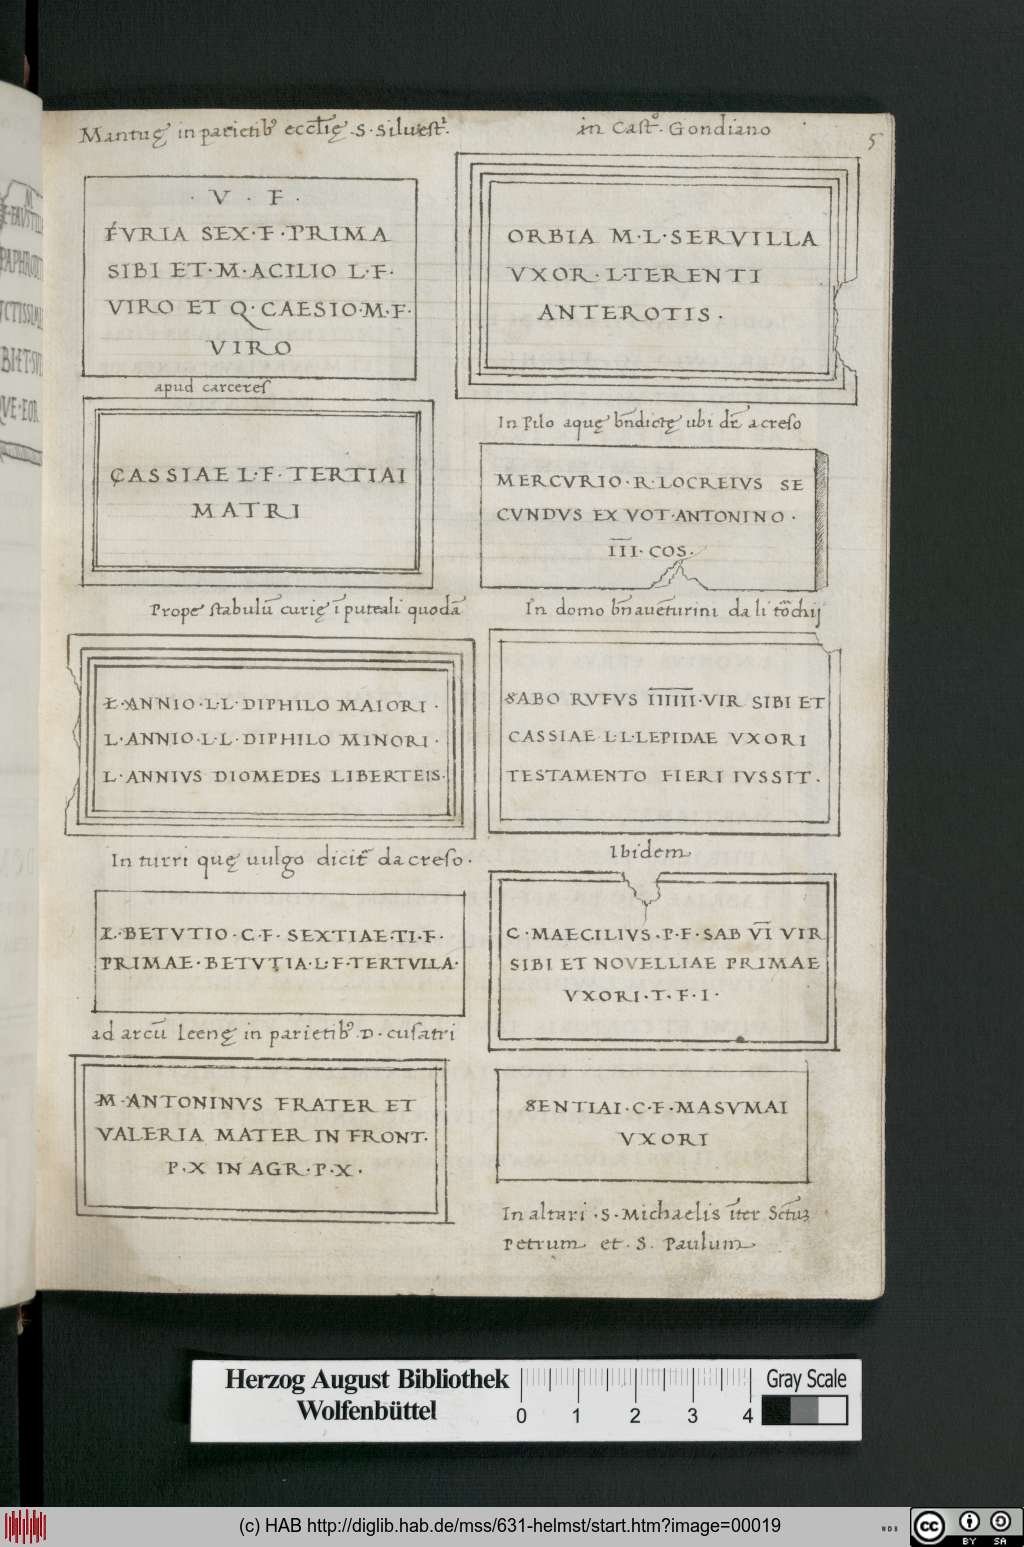 Mantuę in parietib᾿ eccl̄ię .S. Siluest̄.
· V · F ·
FVRIA SEX · F · PRIMA
SIBI ET · M · ACILIO L · F ·
VIRO ET Q · CAESIO · M · F ·
VIRO
apud carceres
CASSIAE L · F · TERTIAI
MATRI
Prope stabulū curię ī puteali quodā
L · ANNIO · L · L · DIPHILO MAIORI ·
L · ANNIO · L · L · DIPHILO MINORI ·
L · ANNIVS DIOMEDES LIBERTEIS ·
In turri quę uulgo dicit̄ da creso ·
L · BETVTIO · C · F · SEXTIAE · TI · F ·
PRIMAE · BETVTIA · L · F · TERTVLLA ·
ad arcū leenę in parietib᾿ · D · cusatri
M · ANTONINVS FRATER ET
VALERIA MATER IN FRONT ·
P · X IN AGR · P · X ·
in Cast°. Gondiano
5
ORBIA M · L · SERVILLA
VXOR · L · TERENTI
ANTEROTIS ·
In Pilo aquę bn̄dictę ubi dr̄ a creso
MERCVRIO · R · LOCREIVS SE
CVNDVS EX VOT · ANTONINO ·
I̅I̅I̅ · COS ·
In domo bn̄auēturini da li tōchij
SABO RVFVS I̅I̅I̅I̅I̅I̅ · VIR SIBI ET
CASSIAE L · L · LEPIDAE VXORI
TESTAMENTO FIERI IVSSIT ·
Ibidem
C · MAECILIVS · P · F · SAB V̅I̅ VIR
SIBI ET NOVELLIAE PRIMAE
VXORI · T · F · I ·
SENTIAI · C · F · MASVMAI
VXORI
In altari · S · Michaelis īter
Petrum et · S · Paulum
Herzog August Bibliothek
Wolfenbüttel
0 1 2 3 4
Gray Scale
(c) HAB http://diglib.hab.de/mss/631-helmst/start.htm?image=00019
WDB
cc BY SA